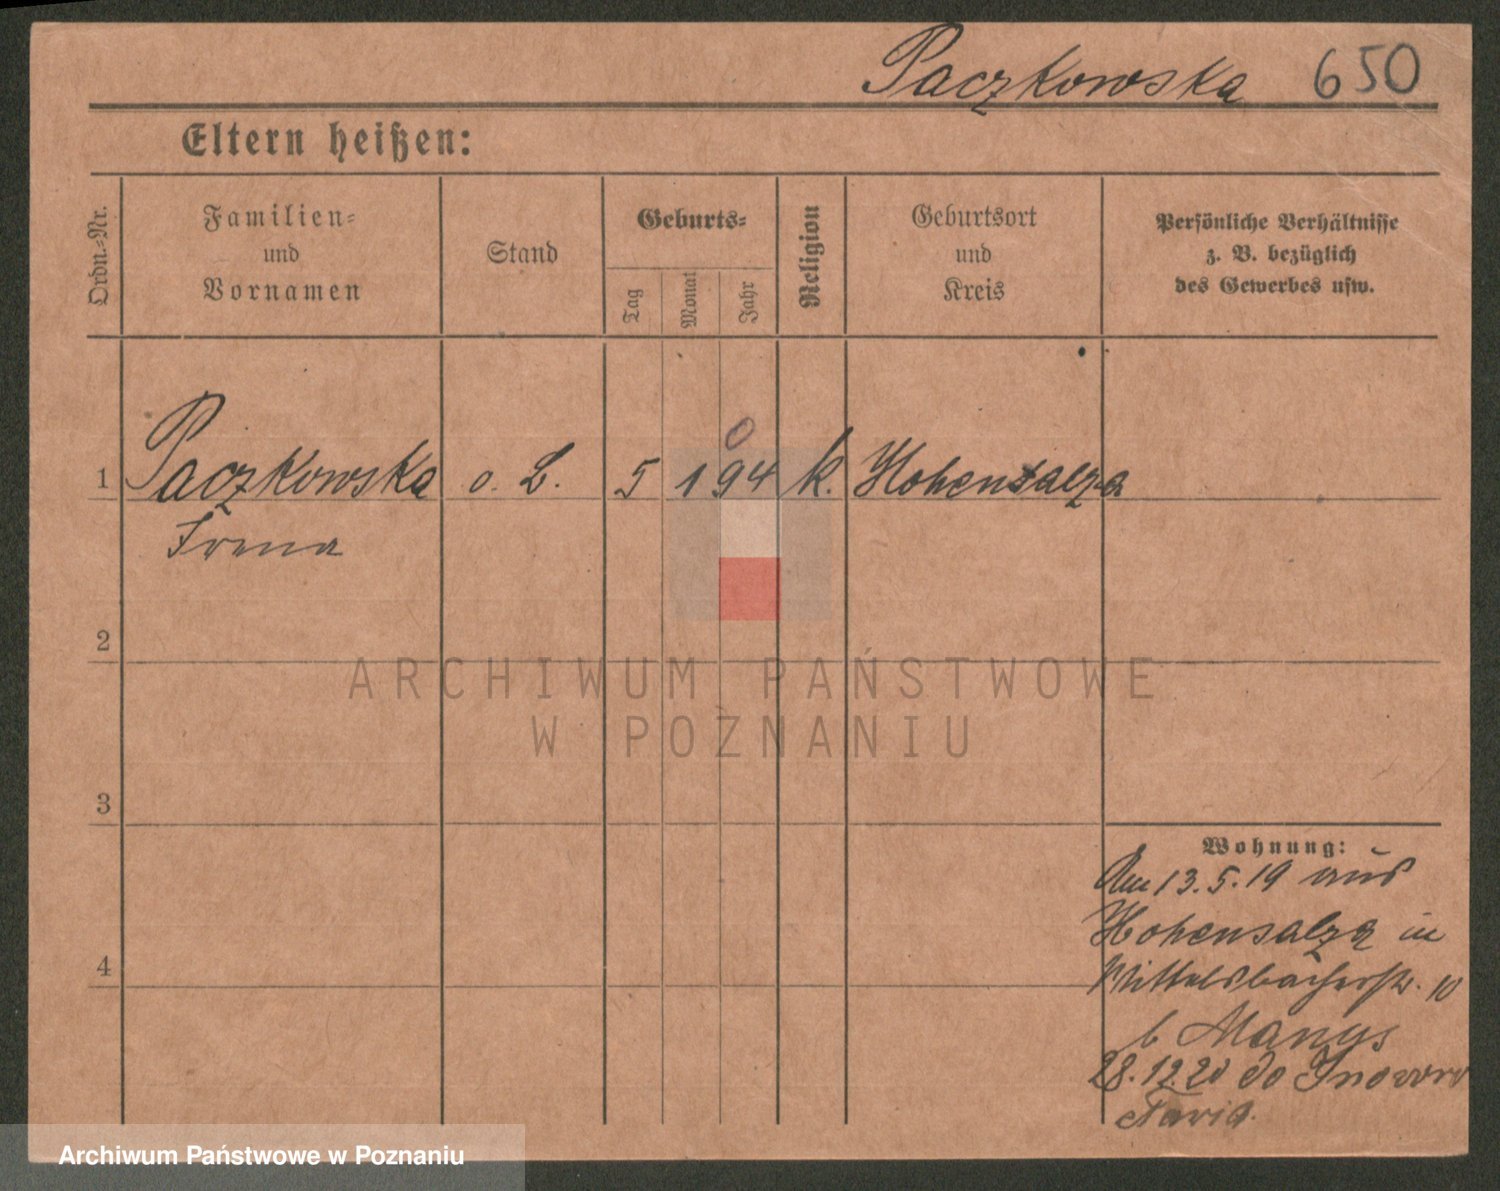 Paczkowska 650
Eltern heißen:
Ordn.-Nr.
Familien-
und
Vornamen
Stand
Geburts-
Tag
Monat
Jahr
Religion
Geburtsort
und
Kreis
Persönliche Verhältnisse
z. B. bezüglich
des Gewerbes usw.
0
1 Paczkowska o. L. 5 1 94 k. Hohensalza
Irena
2
ARCHIWUM PAŃSTWOWE
W POZNANIU
3
Wohnung:
Am 13.5.19 aus
Hohensalza in
4
Wittelsbacherstr. 10
b Manys
28.12.20 do Inowro
cławia.
Archiwum Państwowe w Poznaniu